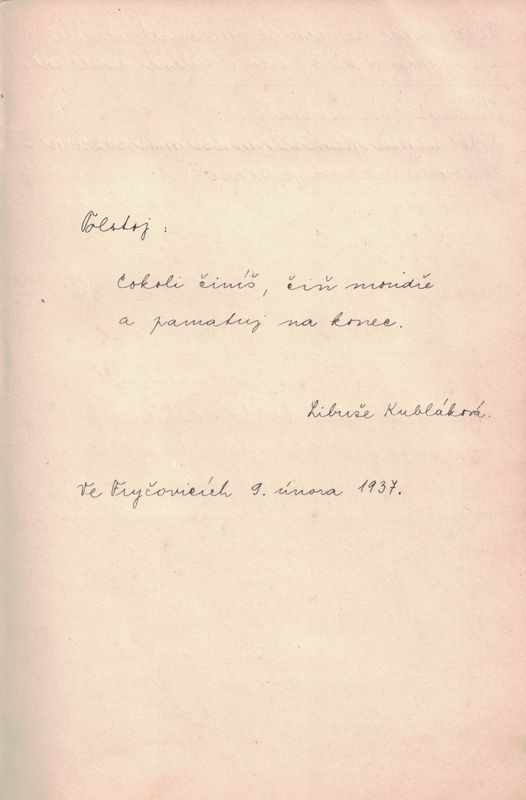 Tolstoj:
Cokoli činíš, čiň moudře
a pamatuj na konec.
Libuše Kubláková.
Ve Fryčovicích 9. února 1937.